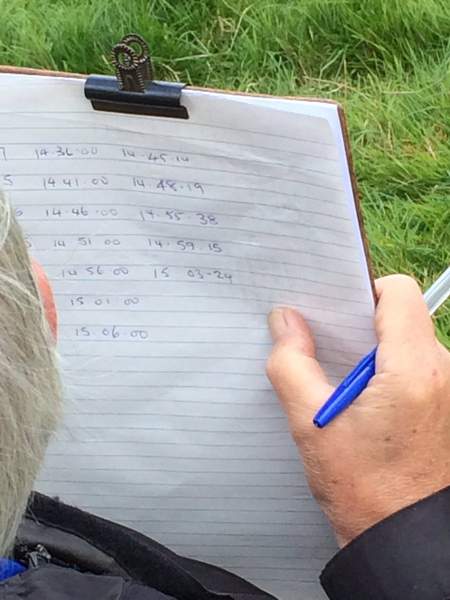 7 14.36.00 14.45.14
5 14.41.00 14.48.19
14.46.00 14.55.38
14 51 00 14.59.15
14 56 00 15 03-24
15 01 00
15.06.00